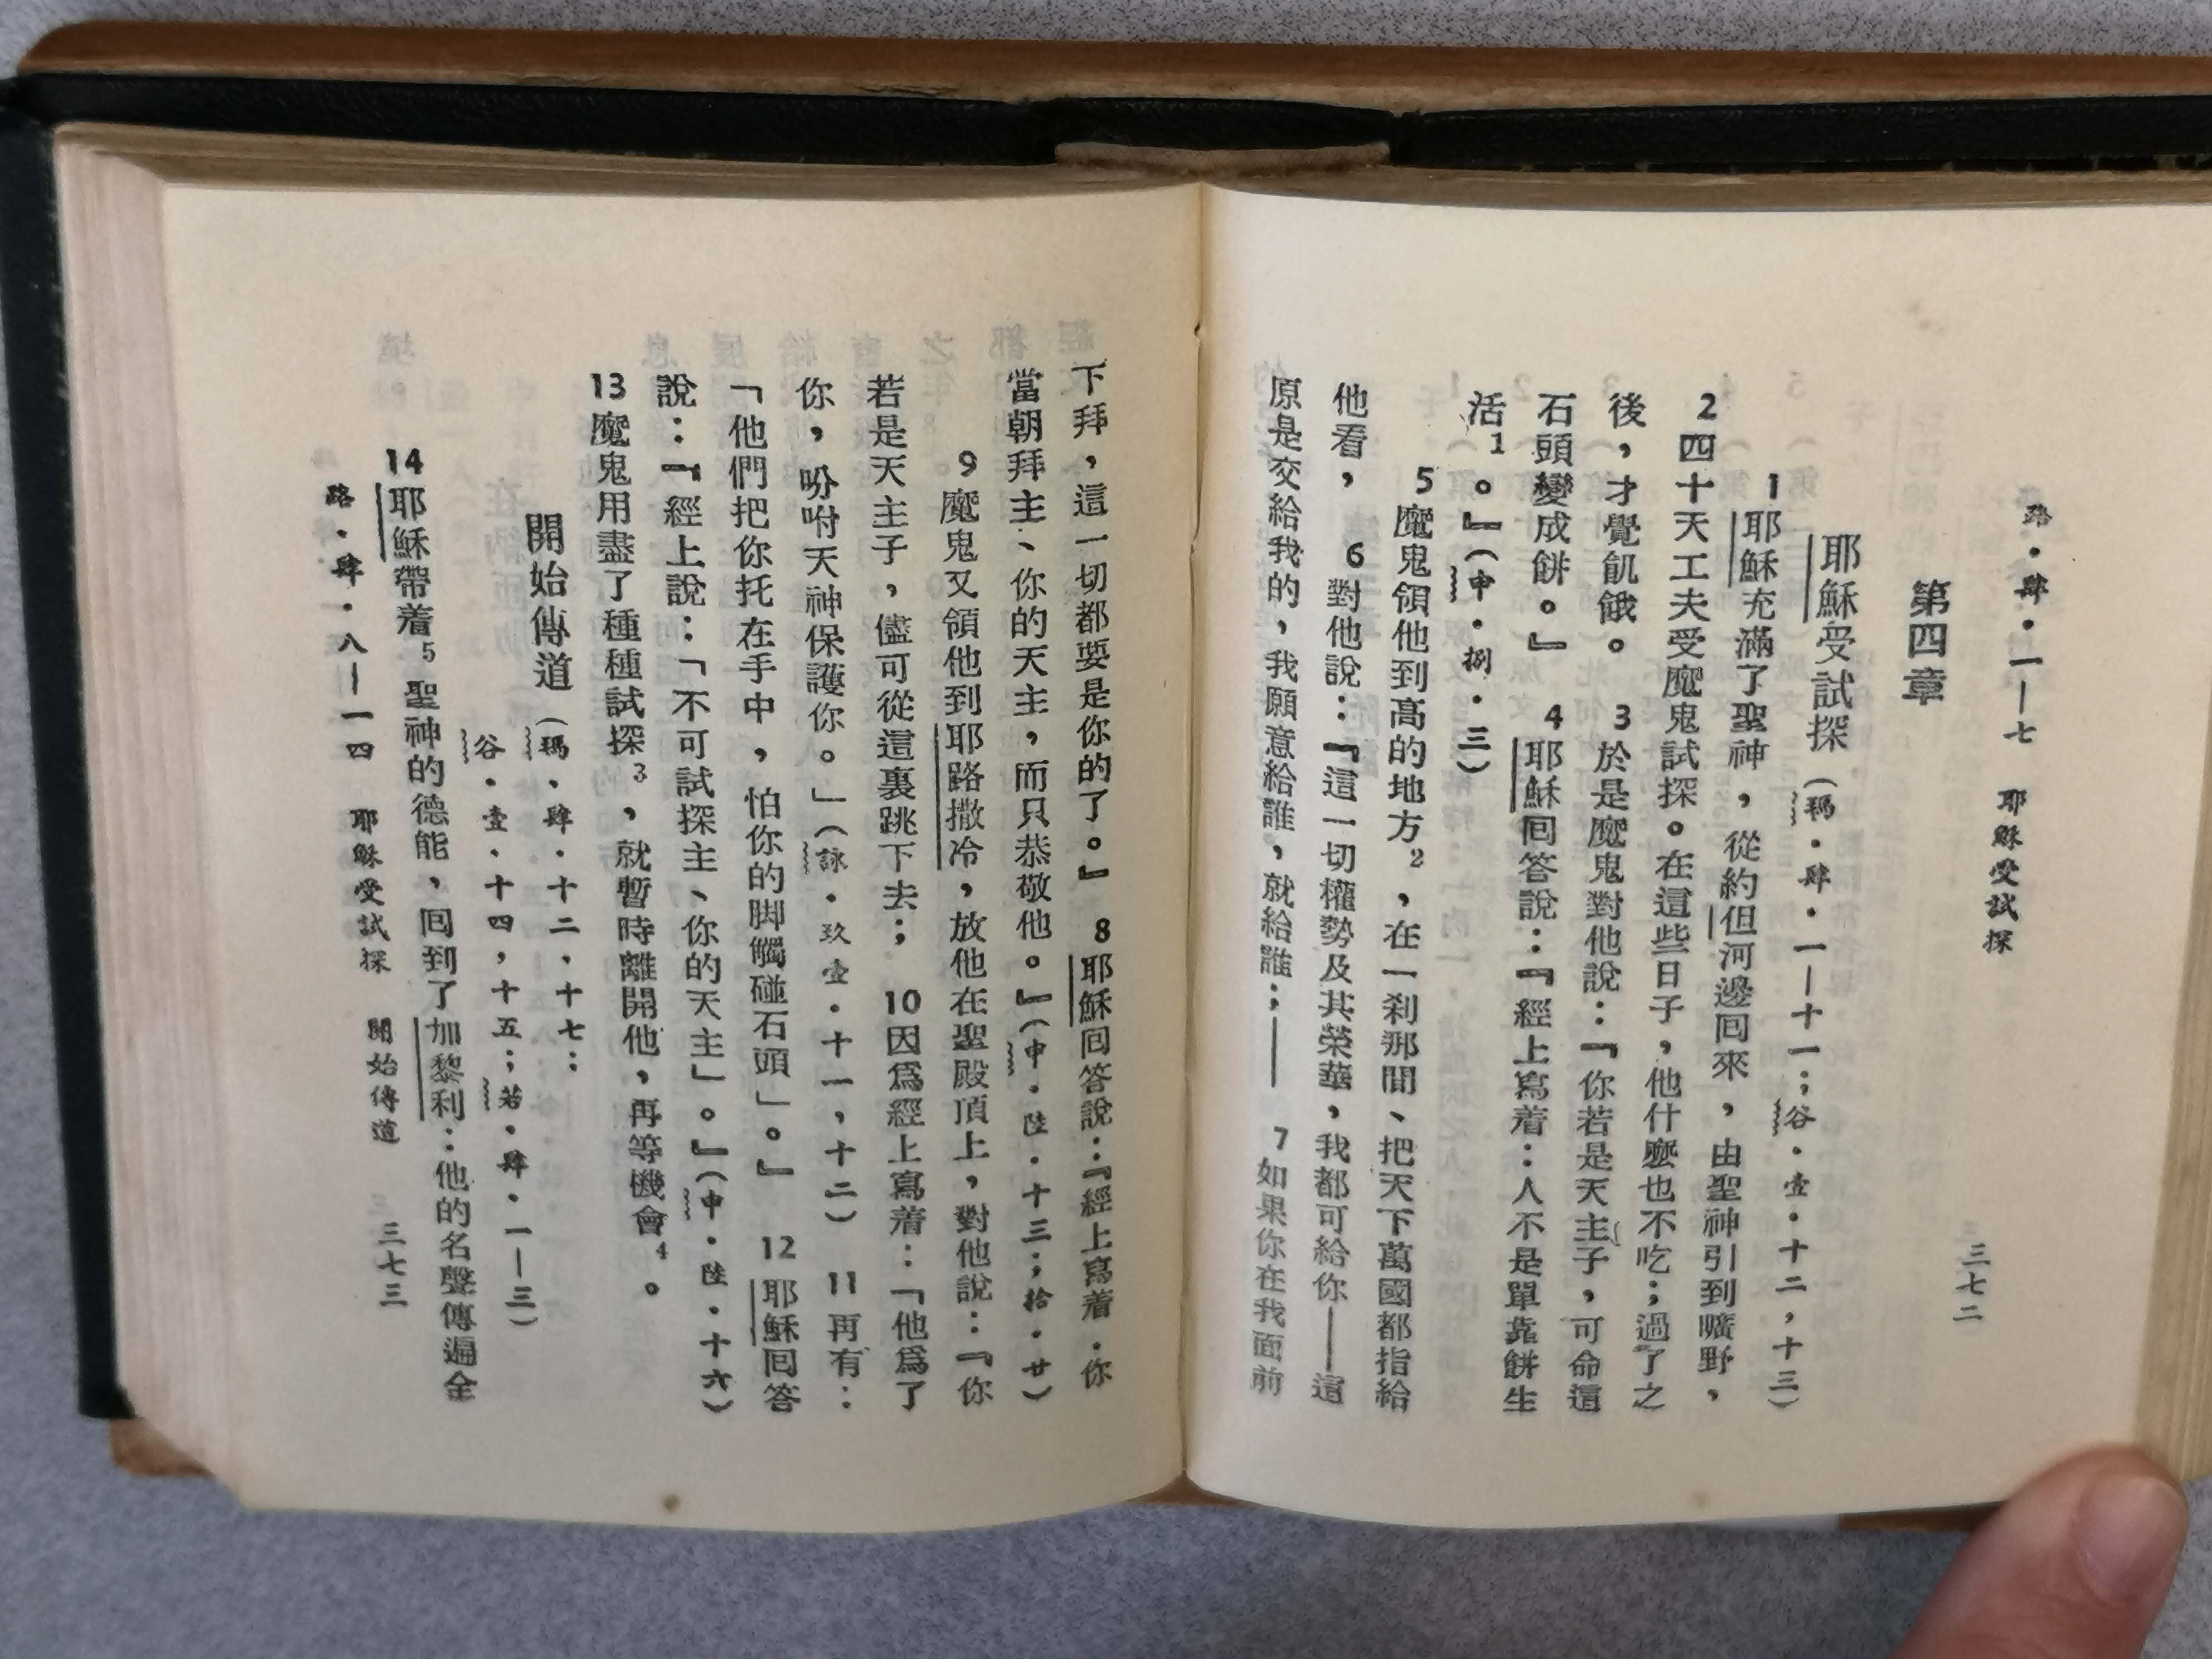 路·肆·一—七 耶穌受試探 三七二
第四章
耶穌受試探(瑪·肆·一—十一；谷·壹·十二，十三)
1耶穌充滿了聖神，從約但河邊囘來，由聖神引到曠野，
2四十天工夫受魔鬼試探。在這些日子，他什麼也不吃；過了之
後，才覺飢餓。 3於是魔鬼對他說：『你若是天主子，可命這
石頭變成餅。』 4耶穌囘答說：『經上寫着：人不是單靠餅生
活1。』(申·捌·三)
5魔鬼領他到高的地方2，在一刹那間、把天下萬國都指給
他看， 6對他說：『這一切權勢及其榮華，我都可給你——這
原是交給我的，我願意給誰，就給誰；—— 7如果你在我面前
下拜，這一切都要是你的了。』 8耶穌囘答說：『經上寫着·你
當朝拜主、你的天主，而只恭敬他。』(申·陸·十三；拾·廿)
9魔鬼又領他到耶路撒冷，放他在聖殿頂上，對他說：『你
若是天主子，儘可從這裏跳下去； 10因爲經上寫着：「他爲了
你，吩咐天神保護你。」(詠·玖壹·十一，十二) 11再有：
「他們把你托在手中，怕你的脚觸碰石頭」。』 12耶穌囘答
說：『經上說：「不可試探主、你的天主」。』(申·陸·十六)
13魔鬼用盡了種種試探3，就暫時離開他，再等機會4。
開始傳道(瑪·肆·十二、十七：
谷·壹·十四，十五；若·肆·一—三)
14耶穌帶着5聖神的德能，囘到了加黎利：他的名聲傳遍全
路·肆·八—一四 耶穌受試探 開始傳道 三七三